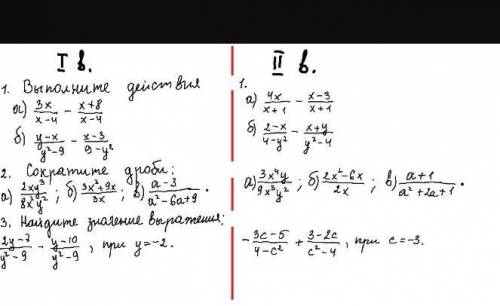 I в.
1. Выполните действия
а) 3x/(x-4) - (x+8)/(x-4)
б) (y-x)/(y²-9) - (x-3)/(9-y²)
2. Сократите дроби:
а) 2xy³/(8x²y²); б) (3x²+9x)/(3x); в) (a-3)/(a²-6a+9).
3. Найдите значение выражения:
(2y-7)/(y²-9) - (y-10)/(y²-9), при y=-2.
II в.
1.
а) 4x/(x+1) - (x-3)/(x+1)
б) (2-x)/(4-y²) - (x+y)/(y²-4)
а) 3x⁴y/(9x³y²); б) (2x²-6x)/(2x); в) (a+1)/(a²+2a+1).
- (3c-5)/(4-c²) + (3-2c)/(c²-4), при c=-3.